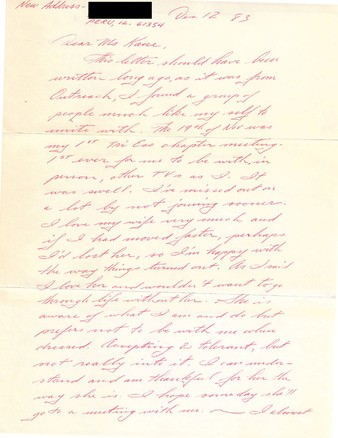 New Address-
PERU, IL. 61354
Dec 12 83
Dear Ms Kane,
This letter should have been
written long ago, as it was from
Outreach, I found a group of
people much like my self to
unite with. The 19th of Nov was
my 1st Tri Ess chapter meeting.
1st ever for me to be with, in
person, other TV s as I. It
was swell. I'm missed out on
a lot by not joining sooner.
I love my wife very much and
if I had moved faster, perhaps
I'd lost her, so I'm happy with
the way things turned out. As I said
I love her and wouldn't want to go
through life without her. She is
aware of what I am and do but
prefers not to be with me when
dressed. Accepting & tolerant, but
not really into it. I can under-
stand and am thankful for her the
way she is. I hope someday she'll
go to a meeting with me. — I almost